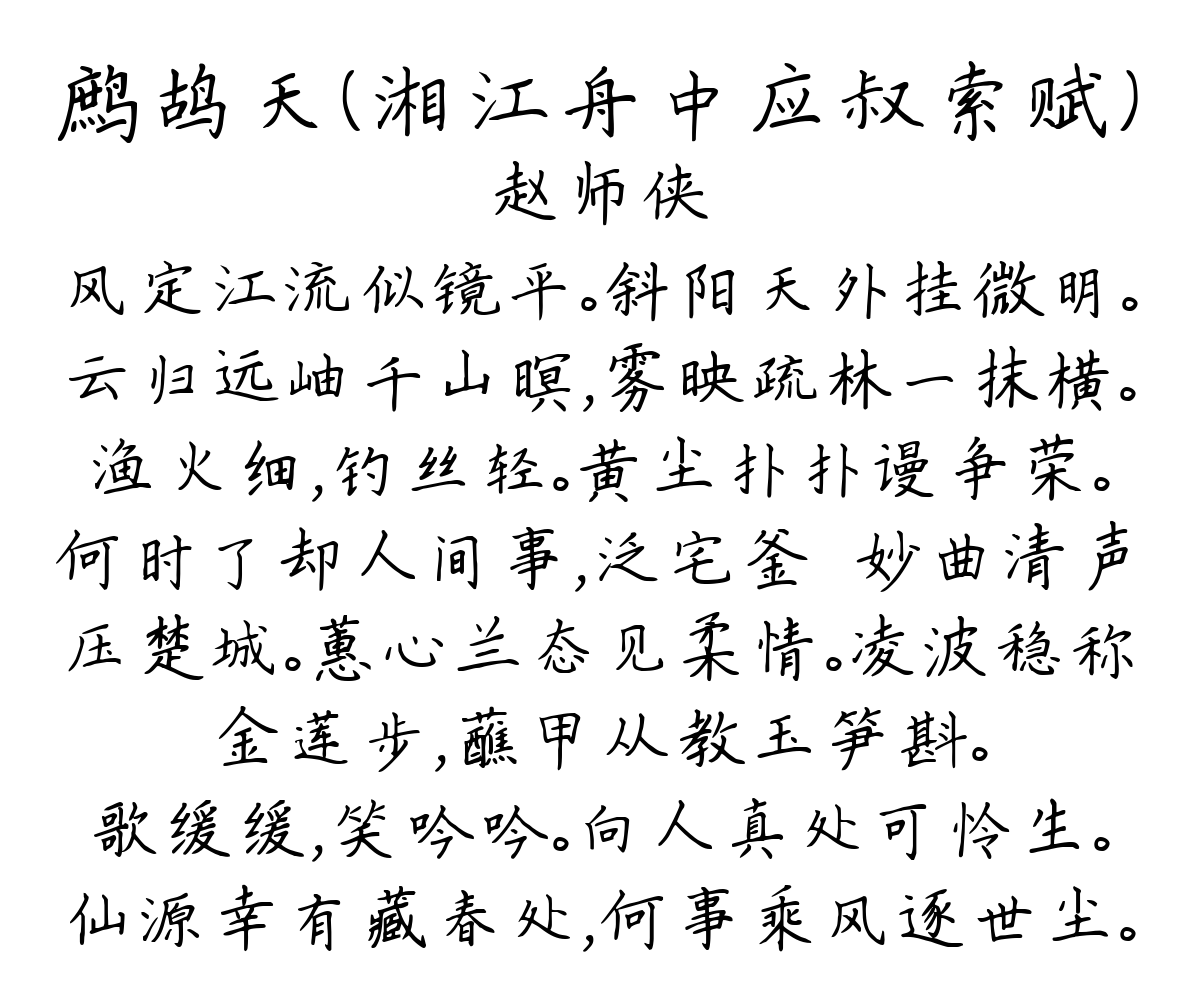 鹧鸪天(湘江舟中应叔索赋)
赵师侠
风定江流似镜平。斜阳天外挂微明。
云归远岫千山暝,雾映疏林一抹横。
渔火细,钓丝轻。黄尘扑扑谩争荣。
何时了却人间事,泛宅釜 妙曲清声
压楚城。蕙心兰态见柔情。凌波稳称
金莲步,蘸甲从教玉笋斟。
歌缓缓,笑吟吟。向人真处可怜生。
仙源幸有藏春处,何事乘风逐世尘。